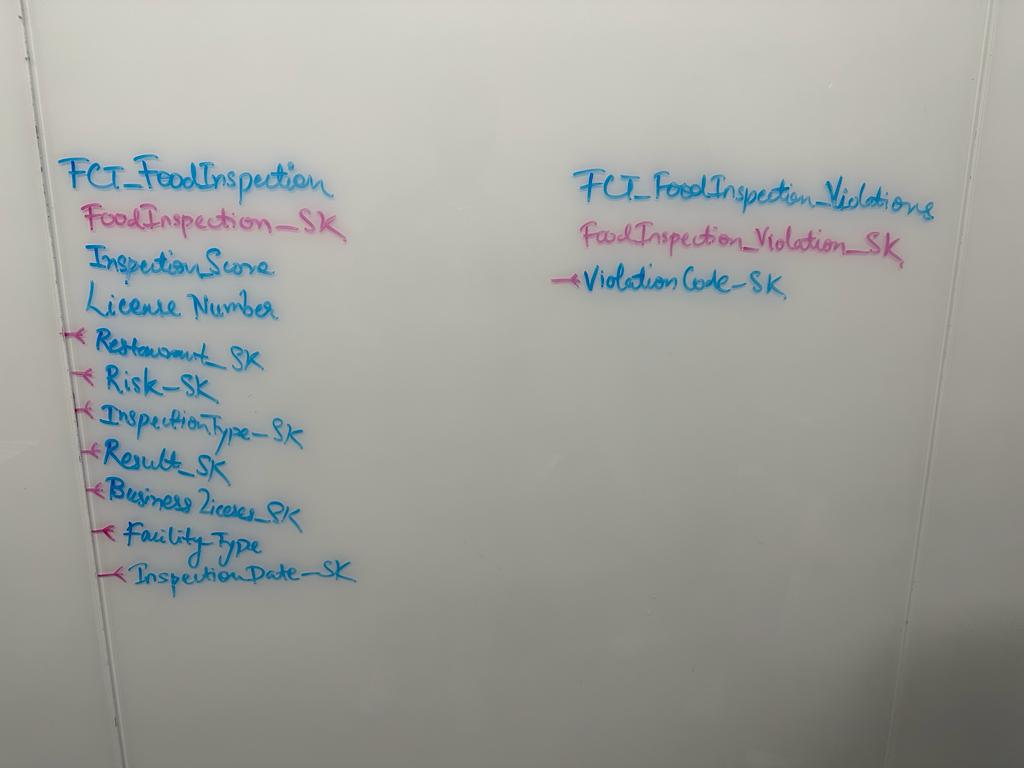 FCT_FoodInspection
FoodInspection_SK
Inspection_Score
License Number
Restaurant_SK
Risk_SK
InspectionType_SK
Result_SK
Business Licenses_SK
Facility_Type
InspectionDate_SK
FCT_FoodInspection_Violations
FoodInspection_Violation_SK
ViolationCode_SK